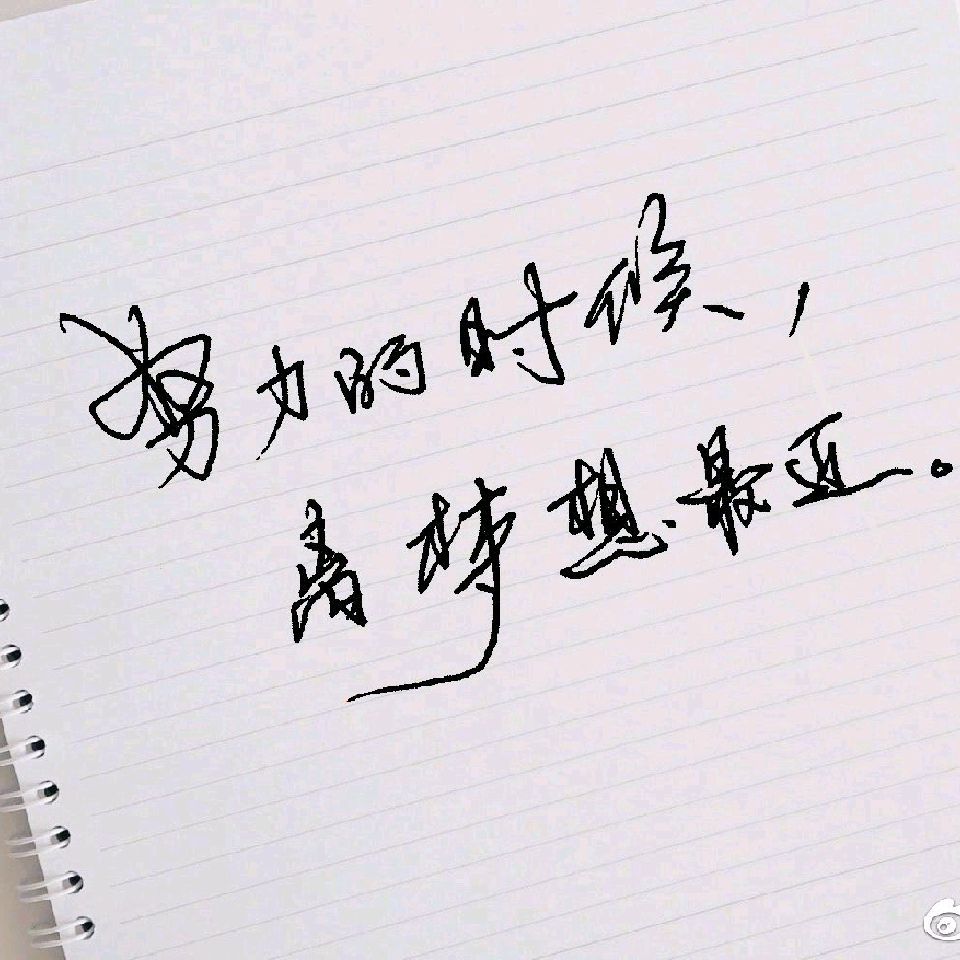 努力的时候,
离梦想最近。